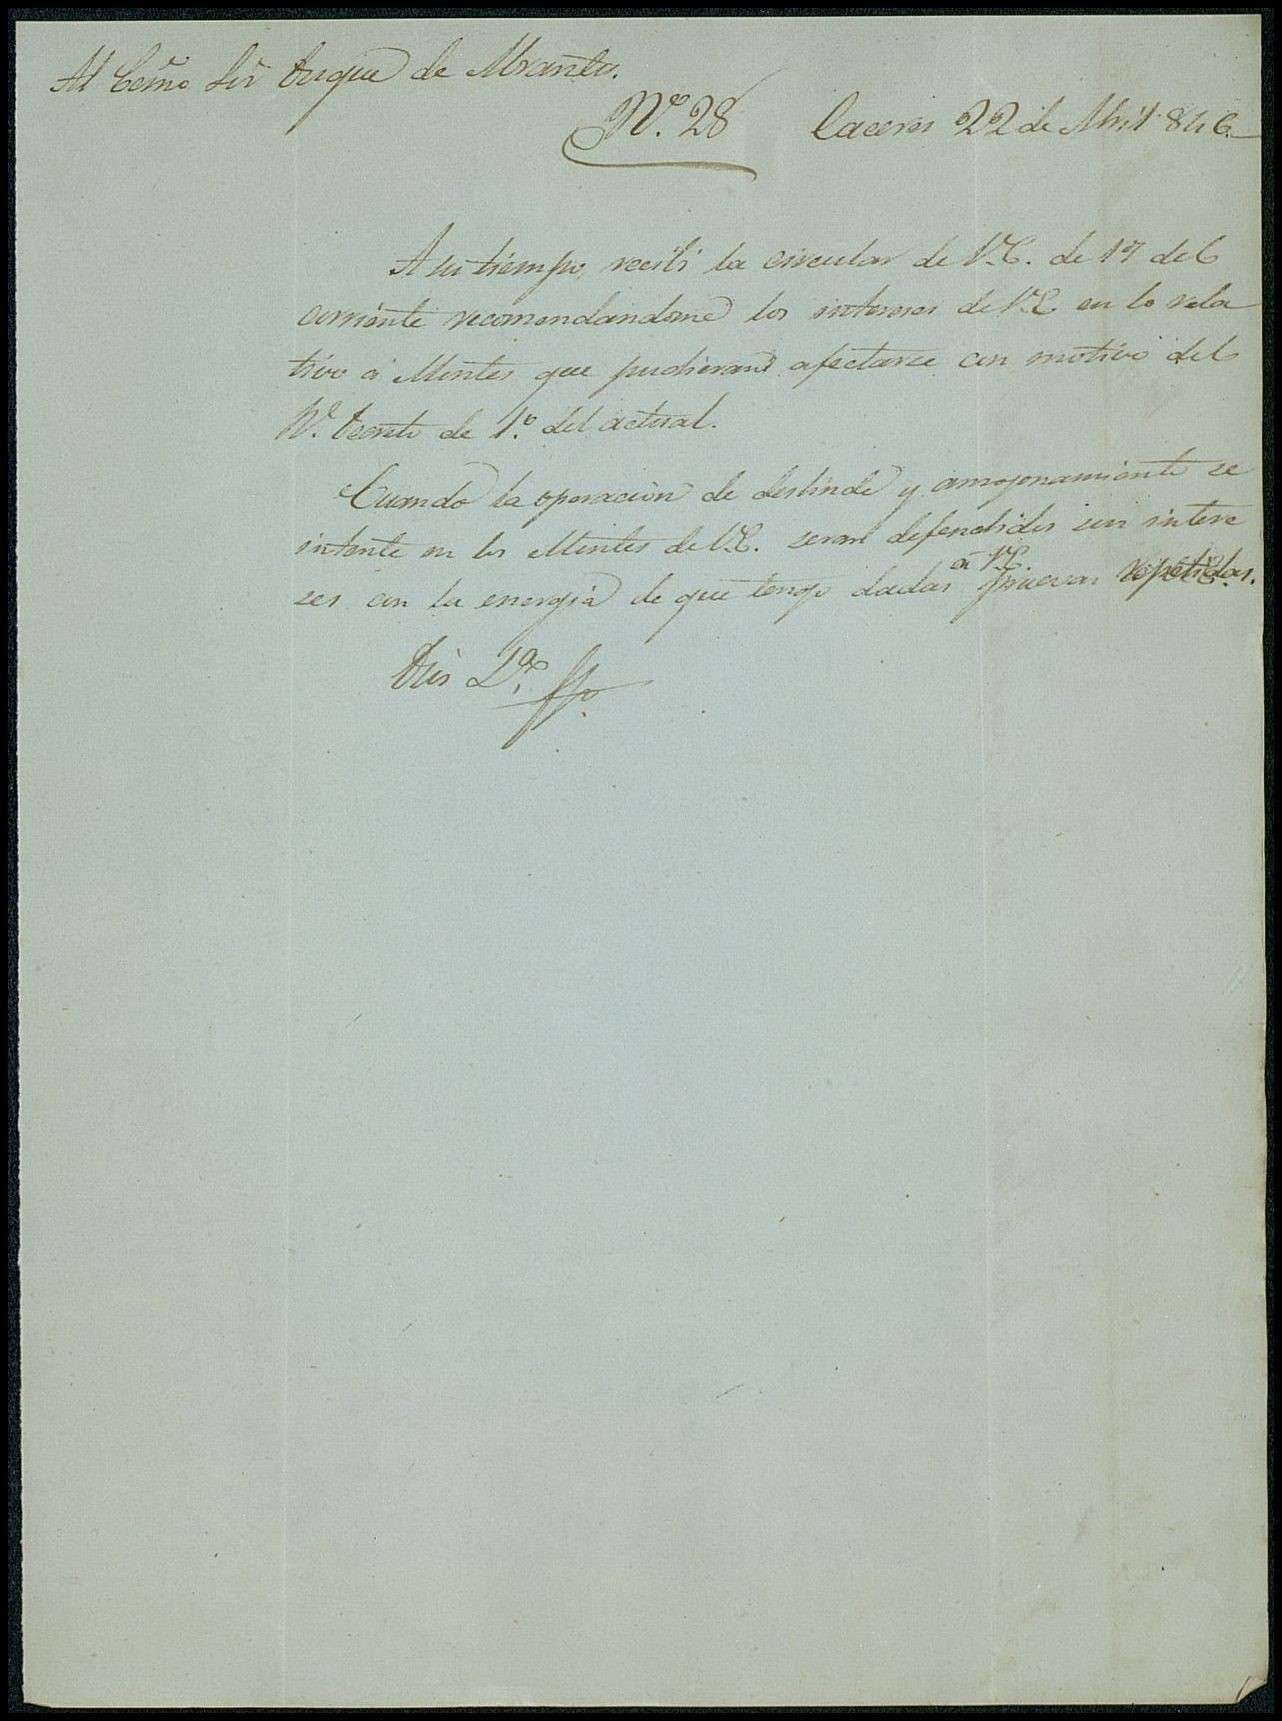 Al Ecmo Sor Duque de Abrantes.
Nº. 28 Caceres 22 de Abril 846.
A su tiempo, recibi la circular de V.E. de 17 del
corriente recomendandome los intereses de V.E en lo rela
tivo á Montes que pudieran afectarse con motivo del
R. Decreto de 1.º del actual.
Cuando la operacion de deslinde y amojonamiento se
intente en los Montes de V.E. seran defendidos sus intere
ses con la energia de que tengo dadas á V.E. pruevas repetidas.
Dios